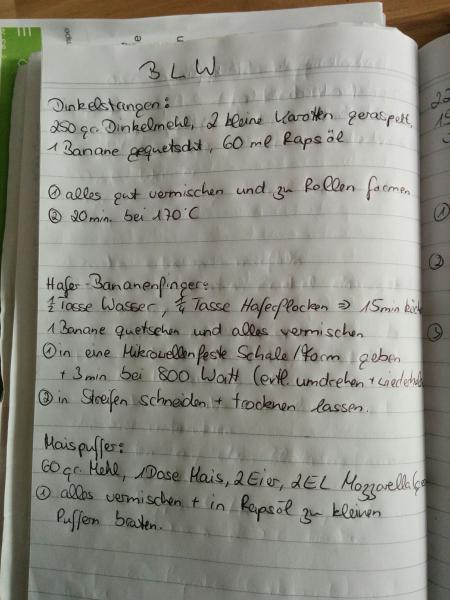 BLW
Dinkelstangen:
250 gr. Dinkelmehl, 2 kleine Karotten geraspelt,
1 Banane gequetscht, 60 ml Rapsöl
① alles gut vermischen und zu Rollen formen
② 20 min. bei 170°C
Hafer-Bananenfinger:
½ Tasse Wasser, ¼ Tasse Haferflocken ⇒ 15min
1 Banane quetschen und alles vermischen
① in eine Mikrowellenfeste Schale/Form geben
+ 3 min bei 800 Watt (evtl. umdrehen +
② in Streifen schneiden + trocknen lassen.
Maispuffer:
60 gr. Mehl, 1 Dose Mais, 2 Eier, 2 EL Mozzarella
① alles vermischen + in Rapsöl zu kleinen
Puffern braten.
22
①
②
③